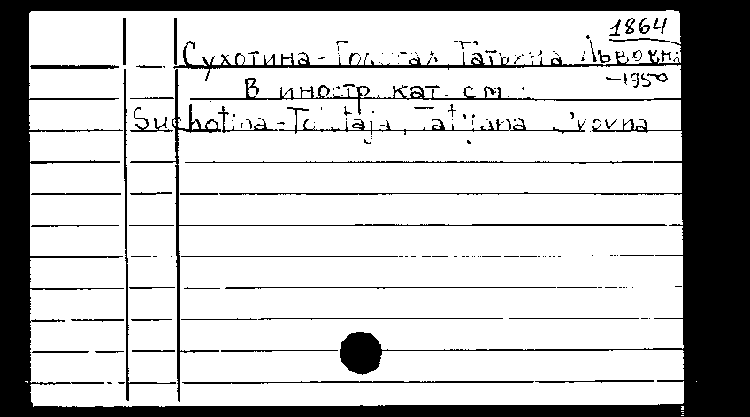 1864
Сухотина-Толстая, Татьяна Львовна
-1950
В иностр. кат. см.:
Suchotina-Tolstaja, Tat'jana L'vovna